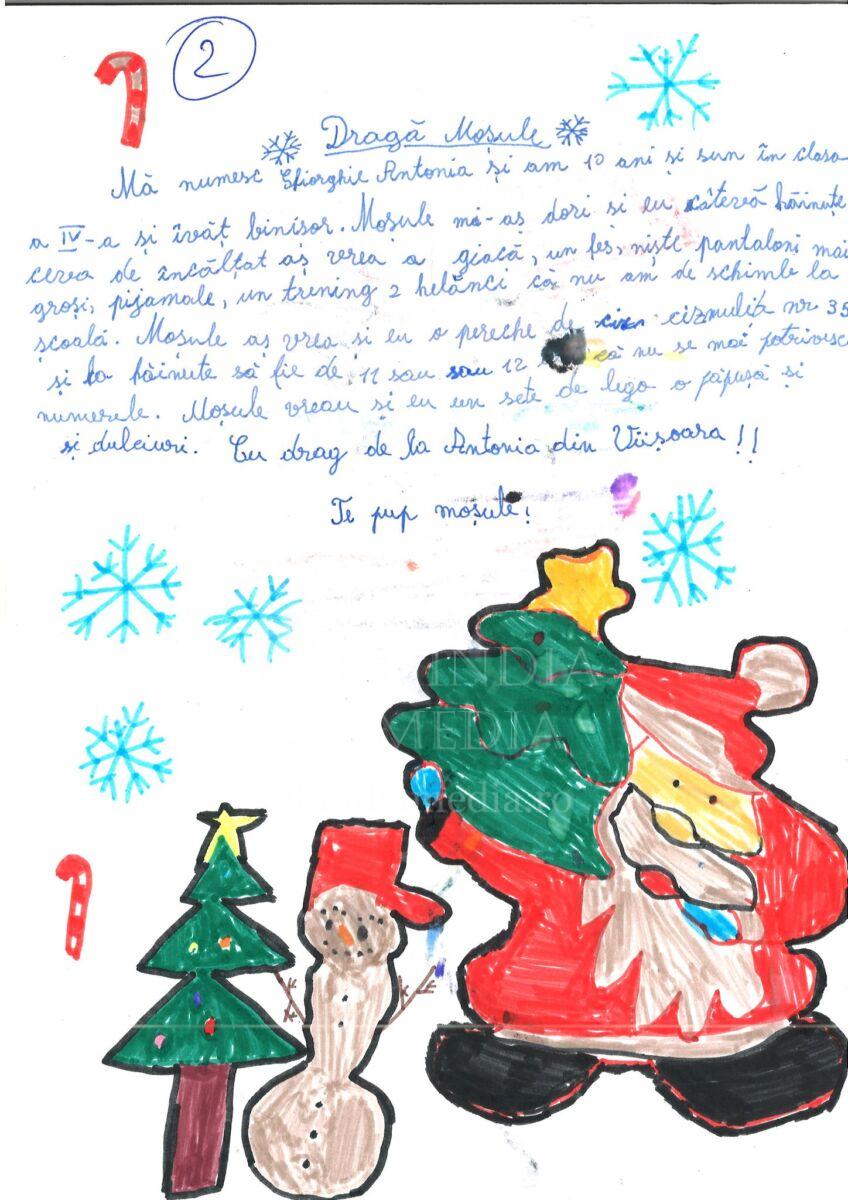 2
Dragă Moșule
Mă numesc Ghiorghie Antonia și am 10 ani și sun în clasa
a IV-a și îvăț binisor. Moșule mi-aș dori si eu câteva hăinuțe
ceva de încălțat aș vrea o giacă, un fes, niști pantaloni mai
groși, pijamale, un trening 2 helănci că nu am de schimb la
școală. Moșule aș vrea și eu o pereche de cizmulița nr 35
și la hăinute să fie de 11 sau sau 12 că nu se mai potrivesc
numerele. Moșule vreau și eu un sete de lego o păpușă și
și dulciuri. Cu drag de la Antonia din Viișoara !!
Te pup moșule!
MEDIA